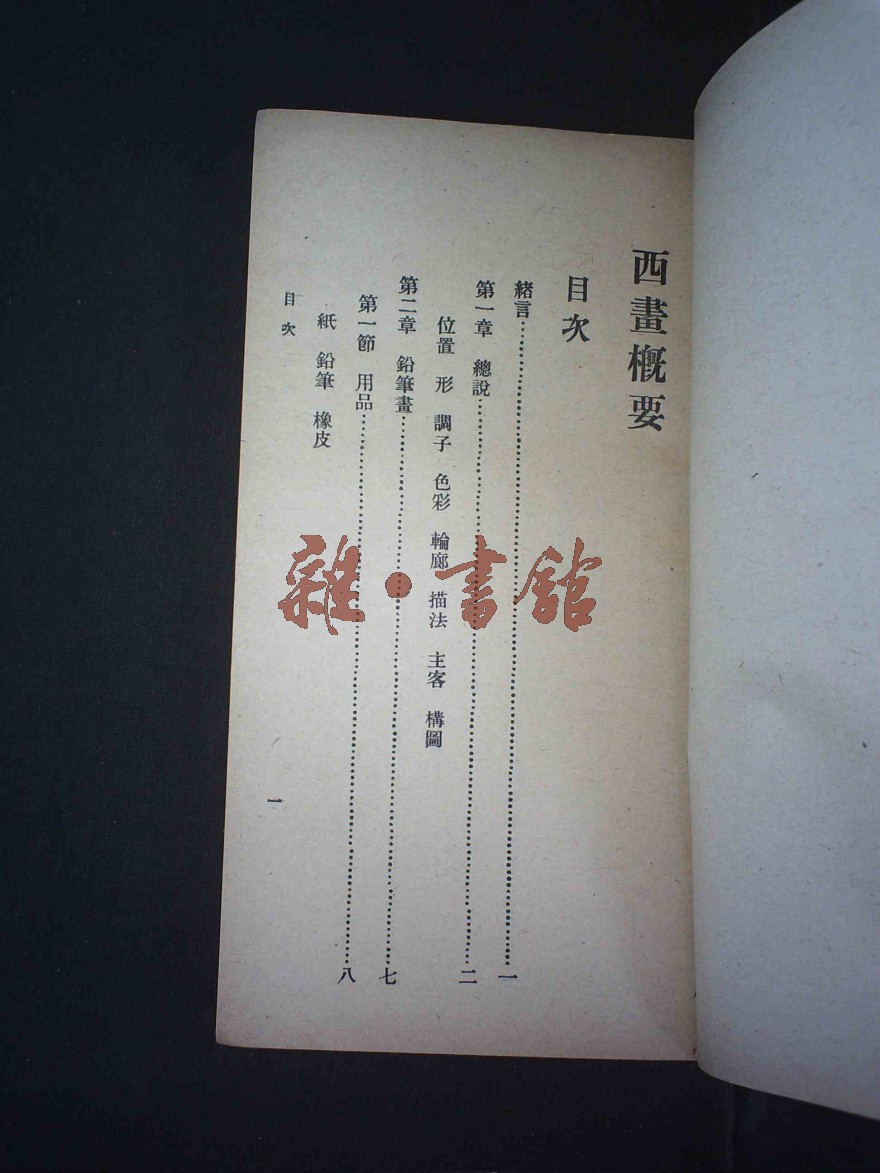 西畫概要
目次
緒言……………………一
第一章 總說……………………二
位置 形 調子 色彩 輪廊 描法 主客 構圖
第二章 鉛筆畫……………………七
第一節 用品……………………八
紙 鉛筆 橡皮
目次
一
雜·書館